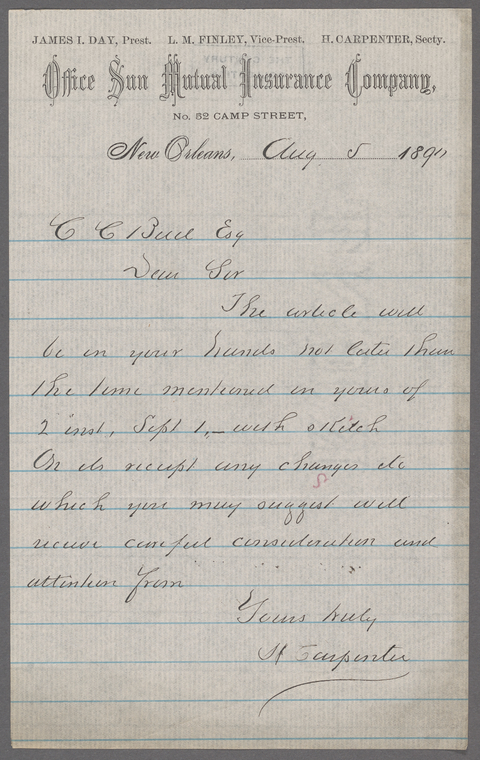 JAMES I. DAY, Prest. L. M. FINLEY, Vice-Prest. H. CARPENTER, Secty.
Office Sun Mutual Insurance Company,
No. 52 CAMP STREET,
New Orleans, Aug 5 189
C C Buel Esq
Dear Sir
The article will
be in your hands not later than
the time mentioned in yours of
2 inst, Sept 1,– with sketch
On its receipt any changes etc
which you may suggest will
receive careful consideration and
attention from
Yours truly
H Carpenter